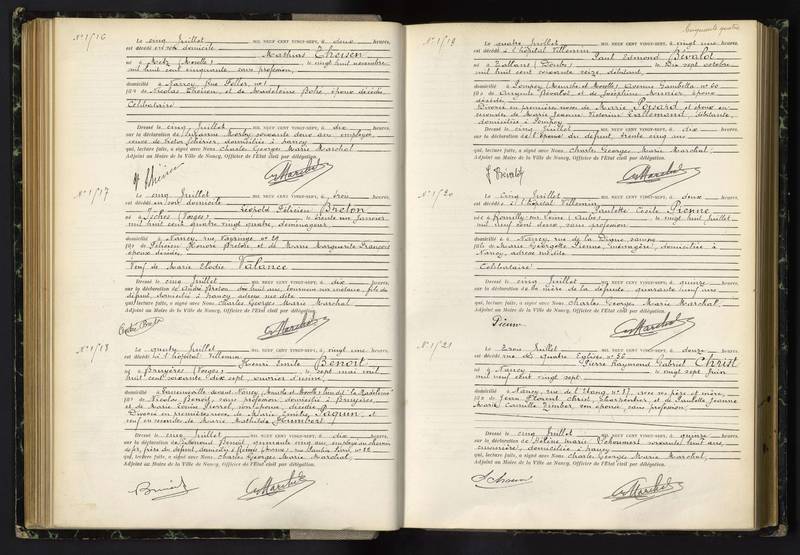 Cinquante quatre
N° 1716
Le cinq Juillet MIL NEUF CENT VINGT-SEPT, à deux heures,
est décédé en son domicile
Mathias Theisen
né à Metz (Moselle) le vingt huit novembre
mil huit cent cinquante, sans profession,
domicilié à Nancy, Rue
fils de Nicolas Theisen, et de Madeleine époux décédés
Célibataire
Dressé le cinq Juillet MIL NEUF CENT VINGT-SEPT, à dix heures,
sur la déclaration de Suzanne soixante deux ans, employé
domiciliée à Nancy
qui, lecture faite, a signé avec Nous, Charles Georges Marie Marchal,
Adjoint au Maire de la Ville de Nancy, Officier de l'Etat civil par délégation.
Marchal
N° 1717
Le cinq Juillet MIL NEUF CENT VINGT-SEPT, à heures,
est décédé en son domicile
Léopold Félicien Breton
né à (Vosges) le trente un Janvier
mil huit cent quatre vingt quatre, déménageur,
domicilié à Nancy, rue 29
fils de Félicien Honoré Breton, et de Marie Marguerite François
époux décédés,
Veuf de Marie Elodie Valance
Dressé le cinq Juillet MIL NEUF CENT VINGT-SEPT, à dix heures,
sur la déclaration de André Breton, dix huit ans, tourneur sur métaux, fils du
défunt, domicilié à Nancy, adresse sus dite
qui, lecture faite, a signé avec Nous, Charles Georges Marie Marchal,
Adjoint au Maire de la Ville de Nancy, Officier de l'Etat civil par délégation.
Marchal
N° 1718
Le quatre Juillet MIL NEUF CENT VINGT-SEPT, à vingt une heures,
est décédé à l'hôpital Villemin
Henri Emile Benoit
né à Bruyères (Vosges) le sept mai mil
huit cent soixante dix sept, ouvrier d'usine,
domicilié à devant Nancy (Meurthe et Moselle) lieu dit la Madeleine
fils de Nicolas Benoit, sans profession, domicilié à Bruyères,
et de Marie Louise son épouse, décédée
Divorcé en premières noces de Marie Paquin, et
veuf en secondes de Marie Mathilde Humbert
Dressé le cinq Juillet MIL NEUF CENT VINGT-SEPT, à heures,
sur la déclaration de Benoit, quarante cinq ans, employé au chemin
de fer, frère du défunt, domicilié à Reims (Marne), rue 22
qui, lecture faite, a signé avec Nous, Charles Georges Marie Marchal,
Adjoint au Maire de la Ville de Nancy, Officier de l'Etat civil par délégation.
Marchal
N° 1719
Le quatre Juillet MIL NEUF CENT VINGT-SEPT, à vingt une heures,
est décédé à l'hôpital Villemin
Paul Edmond Bévalot
né à (Doubs) le dix sept octobre
mil huit cent soixante seize, débitant,
domicilié à Pompey (Meurthe et Moselle) Avenue Gambetta n° 60
fils de Bévalot, et de Joséphine Monnier, époux
décédés
Divorcé en premières noces de Marie et époux en
secondes de Marie Jeanne Victorine Lallemand, débitante,
domiciliée à Pompey
Dressé le cinq Juillet MIL NEUF CENT VINGT-SEPT, à dix heures,
sur la déclaration de du défunt, trente cinq ans
qui, lecture faite, a signé avec Nous, Charles Georges Marie Marchal,
Adjoint au Maire de la Ville de Nancy, Officier de l'Etat civil par délégation.
Bévalot Marchal
N° 1720
Le Cinq Juillet MIL NEUF CENT VINGT-SEPT, à deux heures,
est décédée à l'hôpital Villemin
Paulette Cécile Pienne
née à Romilly sur Seine (Aube) le vingt huit Juillet
mil neuf cent deux, sans profession
domiciliée à Nancy, rue de la Digue,
fille de Marie Georgette Pienne, ménagère, domiciliée à
Nancy, adresse susdite
Célibataire
Dressé le cinq Juillet MIL NEUF CENT VINGT-SEPT, à quinze heures,
sur la déclaration de la mère de la défunte, quarante neuf ans
qui, lecture faite, a signé avec Nous, Charles Georges Marie Marchal,
Adjoint au Maire de la Ville de Nancy, Officier de l'Etat civil par délégation.
Marchal
N° 1721
Le Trois Juillet MIL NEUF CENT VINGT-SEPT, à douze heures,
est décédé rue des quatre Eglises n° 36
Pierre Raymond Gabriel Christ
né à Nancy le vingt Juin
mil neuf cent vingt sept
domicilié à Nancy, rue de l'Etang, n° 17, avec ses père et mère,
fils de Jean Florent Christ, charpentier, et de Paulette Jeanne
Marie Camille Zimber, son épouse, sans profession,
Dressé le cinq Juillet MIL NEUF CENT VINGT-SEPT, à quinze heures,
sur la déclaration de Hélène Marie soixante huit ans,
domiciliée à Nancy
qui, lecture faite, a signé avec Nous, Charles Georges Marie Marchal,
Adjoint au Maire de la Ville de Nancy, Officier de l'Etat civil par délégation.
Marchal